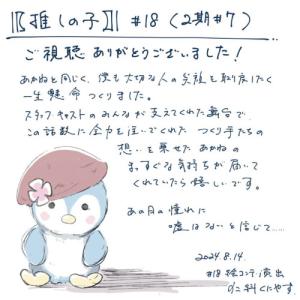 【推しの子】 #18 (2期#7)
ご視聴ありがとうございました！
あかねと同じく、僕も大切な人の笑顔を取り戻したく
一生懸命つくりました。
スタッフ、キャストのみんなが支えてくれた舞台で、
この話数に全力を注いでくれたつくり手たちの
想いを乗せたあかねの
まっすぐな気持ちが届いて
くれていたら嬉しいです。
あの日の憧れに
嘘はないと信じて……
2024.8.14.
#18絵コンテ・演出
仁科くにやす